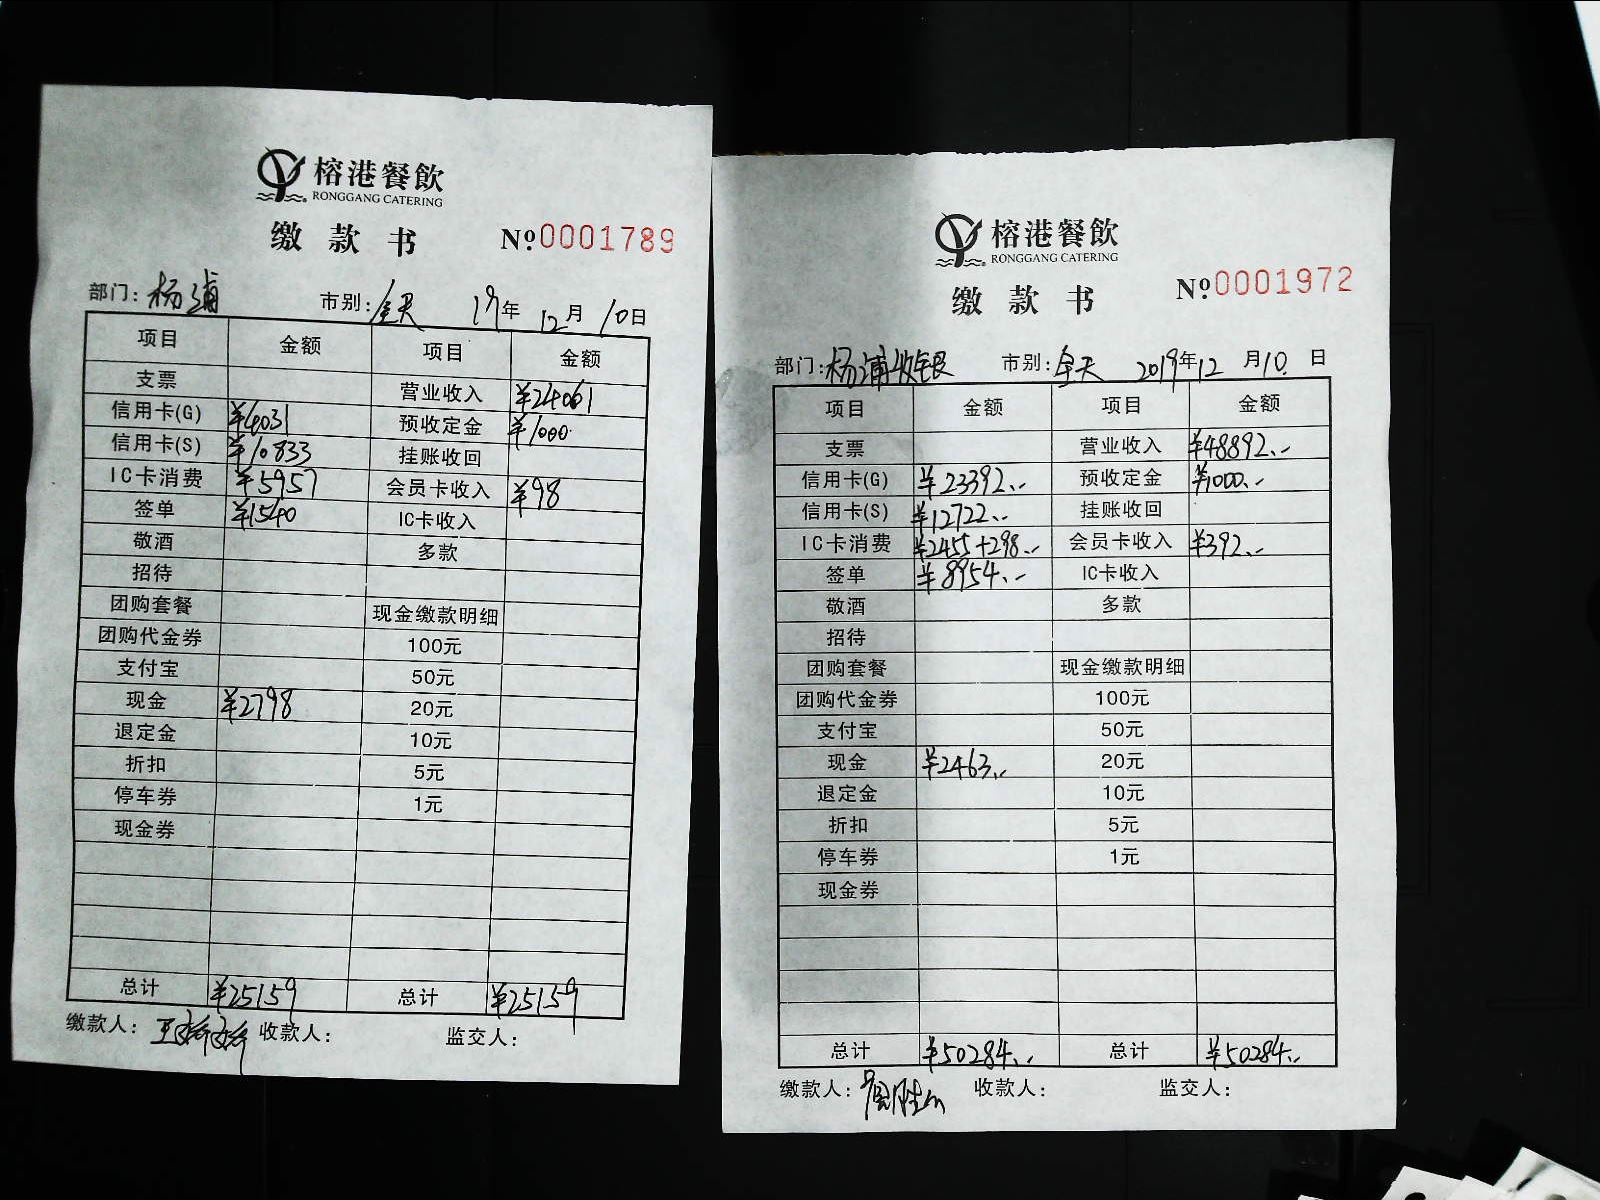 榕港餐飲
RONGGANG CATERING
缴款书 №0001789
部门: 杨浦 市别: 全天 19年 12月 10日
项目 金额 项目 金额
支票 营业收入 ¥24061
信用卡(G) ¥4031 预收定金 ¥1000
信用卡(S) ¥10833 挂账收回
IC卡消费 ¥5957 会员卡收入 ¥98
签单 ¥1540 IC卡收入
敬酒 多款
招待
团购套餐 现金缴款明细
团购代金券 100元
支付宝 50元
现金 ¥2798 20元
退定金 10元
折扣 5元
停车券 1元
现金券
总计 ¥25159 总计 ¥25159
缴款人: 收款人: 监交人:
榕港餐飲
RONGGANG CATERING
缴款书 №0001972
部门: 杨浦收银 市别: 全天 2019年12月10.日
项目 金额 项目 金额
支票 营业收入 ¥48892.--
信用卡(G) ¥23392.-- 预收定金 ¥1000.--
信用卡(S) ¥12722.-- 挂账收回
IC卡消费 ¥2455+298.-- 会员卡收入 ¥392.--
签单 ¥8954.-- IC卡收入
敬酒 多款
招待
团购套餐 现金缴款明细
团购代金券 100元
支付宝 50元
现金 ¥2463.-- 20元
退定金 10元
折扣 5元
停车券 1元
现金券
总计 ¥50284.-- 总计 ¥50284.--
缴款人: 收款人: 监交人: